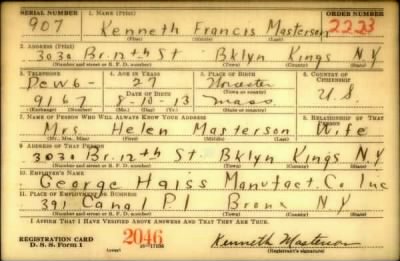 SERIAL NUMBER 1. NAME (Print) ORDER NUMBER
907 Kenneth Francis Masterson 2223
(First) (Middle) (Last)
2. ADDRESS (Print)
3030 Br. 12th St Bklyn Kings N Y
(Number and street or R. F. D. number) (Town) (County) (State)
3. TELEPHONE 4. AGE IN YEARS 5. PLACE OF BIRTH 6. COUNTRY OF CITIZENSHIP
Dew 6- 27 Worcester
DATE OF BIRTH (Town or county) U.S.
916 8-10-13 Mass
(Exchange) (Number) (Mo.) (Day) (Yr.) (State or country)
7. NAME OF PERSON WHO WILL ALWAYS KNOW YOUR ADDRESS 8. RELATIONSHIP OF THAT PERSON
Mrs. Helen Masterson Wife
(Mr., Mrs., Miss) (First) (Middle) (Last)
9. ADDRESS OF THAT PERSON
3030 Br. 12th St. Bklyn Kings N Y
(Number and street or R. F. D. number) (Town) (County) (State)
10. EMPLOYER'S NAME
George Haiss Manufact. Co Inc
11. PLACE OF EMPLOYMENT OR BUSINESS
391 Canal Pl Bronx N Y
(Number and street or R. F. D. number) (Town) (County) (State)
I AFFIRM THAT I HAVE VERIFIED ABOVE ANSWERS AND THAT THEY ARE TRUE.
REGISTRATION CARD 2046 Kenneth Masterson
D. S. S. Form 1 (Registrant's signature)